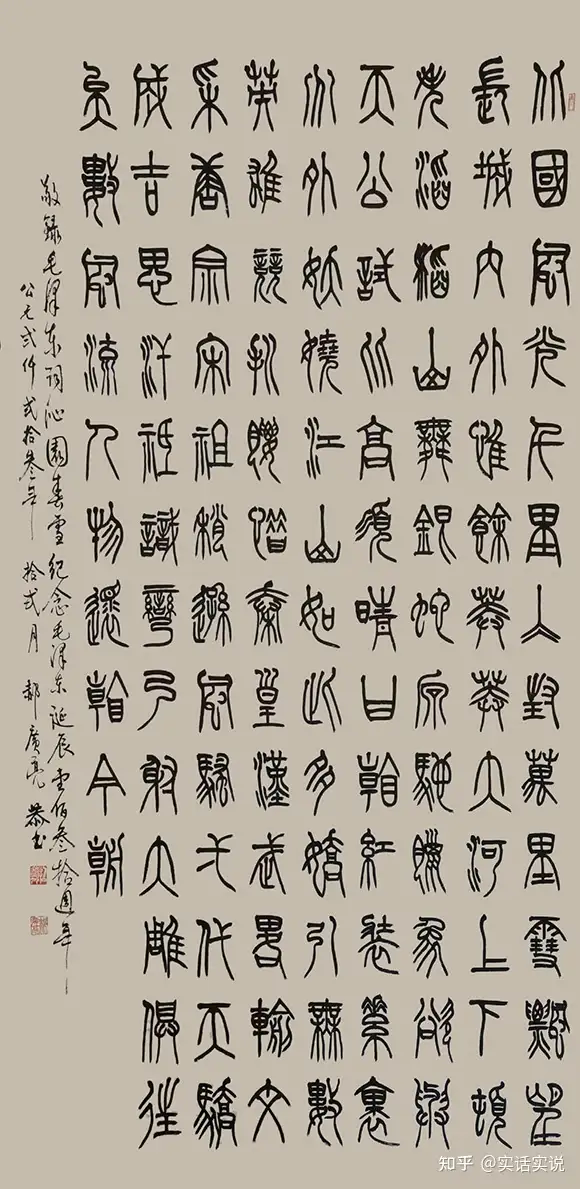 北國風光千里冰封萬里雪飄望
長城內外惟餘莽莽大河上下頓
失滔滔山舞銀蛇原馳臘象欲與
天公試比高須晴日看紅裝素裹
分外妖嬈江山如此多嬌引無數
英雄競折腰惜秦皇漢武略輸文
采唐宗宋祖稍遜風騷弌代天驕
成吉思汗祗識彎弓射大雕俱往
矣數風流人物還看今朝
敬錄毛澤东詞沁園春雪 紀念毛澤东誕辰壹佰叁拾週年
公元弍仟弍拾叁年 拾弍月 郝廣亮 恭书
知乎 @实话实说